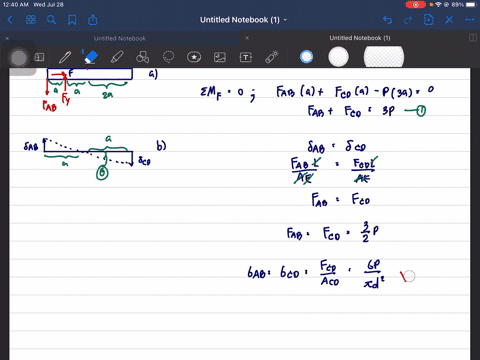 12:40 AM Wed Jul 28
89%
Untitled Notebook (1)
Untitled Notebook (1)
F
a)
a a 2a
F_AB F_y
ΣM_F = 0 ; F_AB (a) + F_CD (a) - P (3a) = 0
F_AB + F_CD = 3P — ①
a
b)
δ_AB
δ_CD
a
δ_AB = δ_CD
F_AB L / AE = F_CD L / AE
F_AB = F_CD
F_AB = F_CD = 3/2 P
б_AB = б_CD = F_CD / A_CD = 6P / πd²